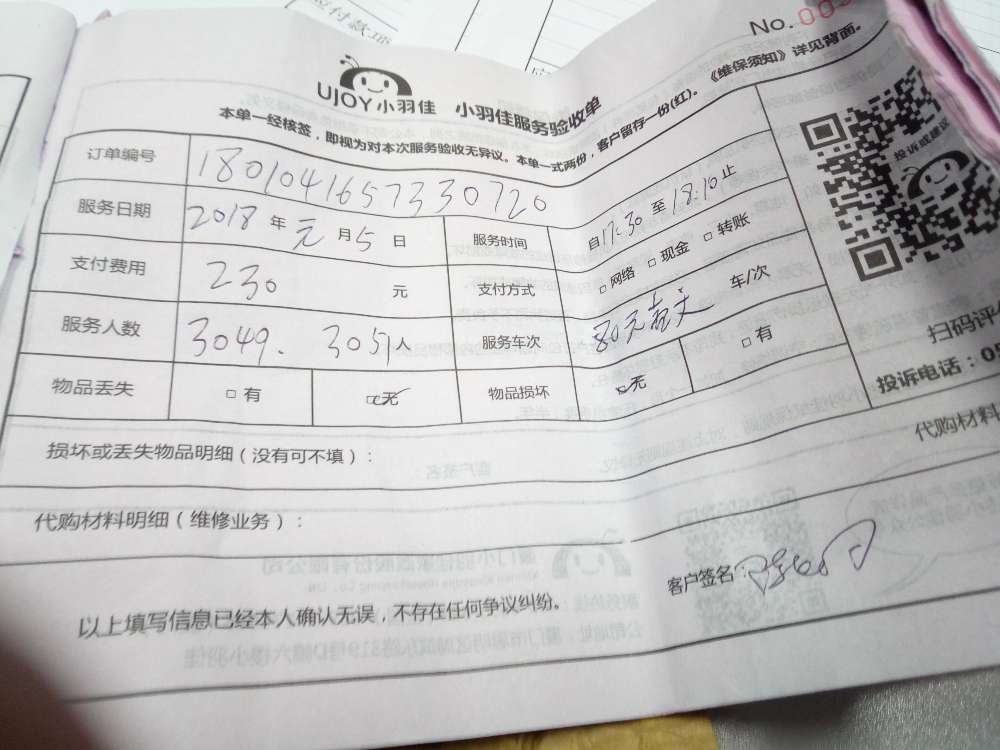 应付款项
No.00
UJOY小羽佳 小羽佳服务验收单
本单一经核签，即视为对本次服务验收无异议。本单一式两份，客户留存一份(红)。《维保须知》详见背面。
订单编号 1801041657330720
服务日期 2018年元月5日 服务时间 自17:30至18:10止
支付费用 230 元 支付方式 □网络 □现金 □转账
服务人数 3049、3051人 服务车次 80元 车/次
物品丢失 □有 □无 物品损坏 □无 □有
投诉或建议
扫码评
投诉电话：05
损坏或丢失物品明细（没有可不填）：
代购材料
代购材料明细（维修业务）：
客户签名：
以上填写信息已经本人确认无误，不存在任何争议纠纷。